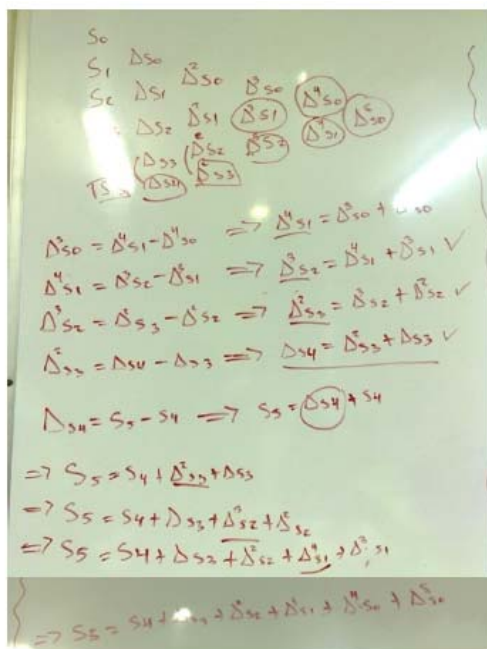 S0
S1 Δs0
S2 Δs1 Δ²s0 Δ³s0 Δ⁴s0
Δs2 Δ²s1 Δ³s1 Δ⁴s1 Δ⁵s0
Δs3 Δ²s2 Δ³s2
Δs4 Δ²s3
Δ⁵s0 = Δ⁴s1 - Δ⁴s0 => Δ⁴s1 =
Δ⁴s1 = Δ³s2 - Δ³s1 => Δ³s2 = Δ⁴s1 + Δ³s1 ✓
Δ³s2 = Δ²s3 - Δ²s2 => Δ²s3 = Δ³s2 + Δ²s2 ✓
Δ²s3 = Δs4 - Δs3 => Δs4 = Δ²s3 + Δs3 ✓
Δs4 = S5 - S4 => S5 = Δs4 + S4
=> S5 = S4 + Δ²s3 + Δs3
=> S5 = S4 + Δs3 + Δ³s2 + Δ²s2
=> S5 = S4 + Δs3 + Δ²s2 + Δ⁴s1 + Δ³s1
=> S5 = S4 + Δ²s2 + Δ³s1 + Δ⁴s0 + Δ⁵s0